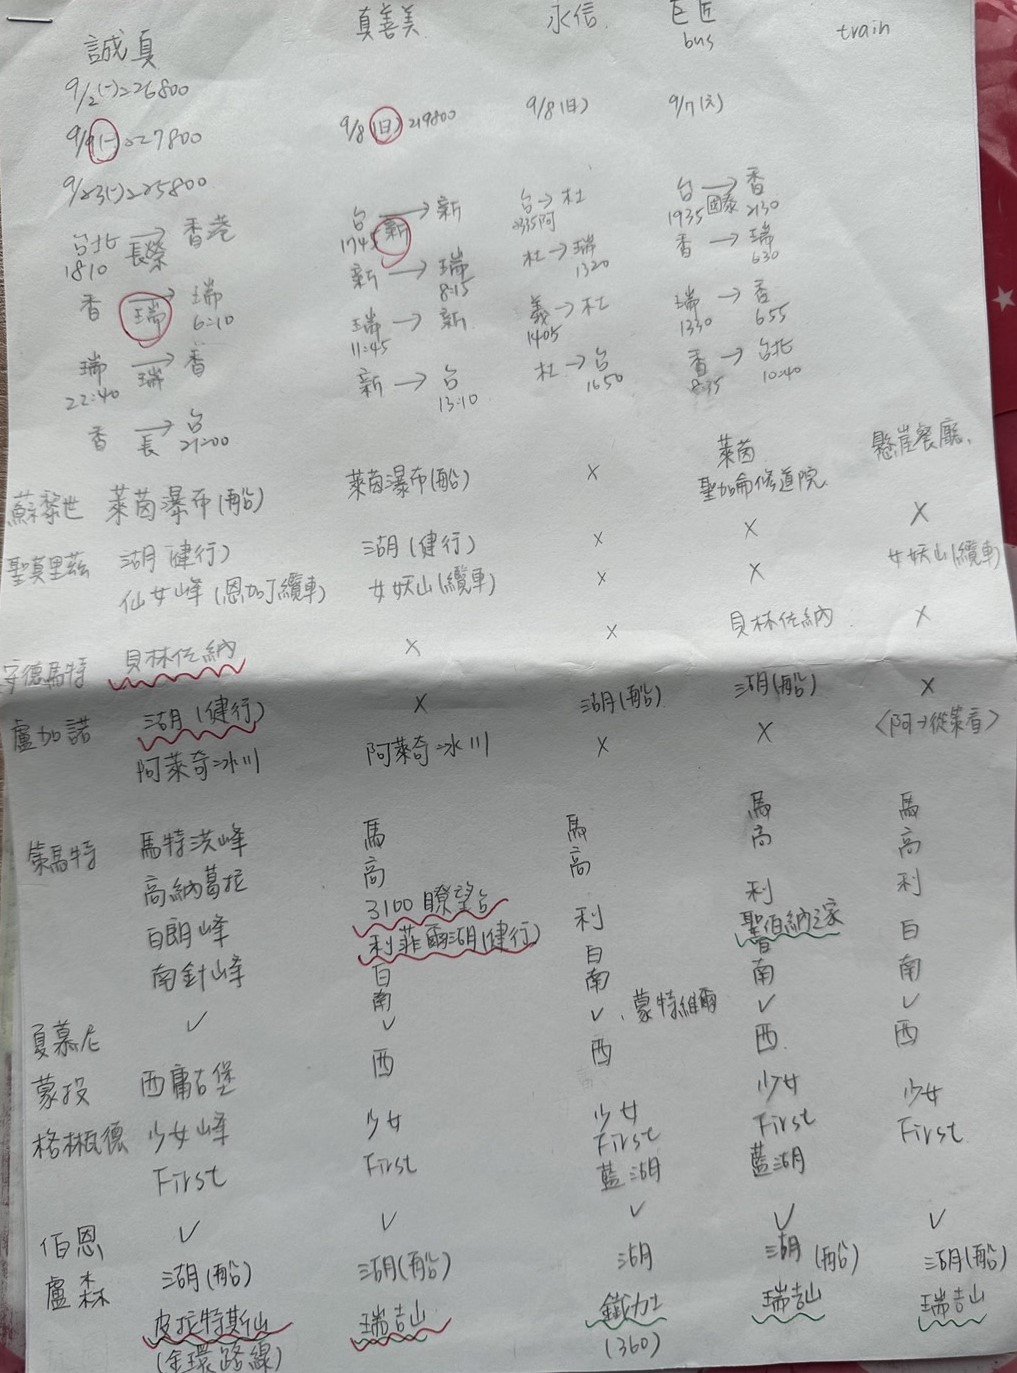 誠真 真善美 永信 巨匠 train
bus
9/2(一)226800
9/9(一)227800 9/8(日)219800 9/8(日) 9/7(六)
9/23(一)225800
台北→香港 台→新 台→杜 台→香
1810 長榮 1745 新 2335阿 1935 國泰 2130
香→瑞 新→瑞 杜→瑞 香→瑞
瑞 6:10 8:15 1320 630
瑞→香 瑞→新 義→杜 瑞→香
22:40 瑞 11:45 1405 1330 655
香→台 新→台 杜→台 香→台北
長 21:00 13:10 1650 8:35 10:40
蘇黎世 萊茵瀑布(船) 萊茵瀑布(船) x 萊茵 懸崖餐廳
聖加侖修道院 x
聖莫里茲 湖(健行) 湖(健行) x x
仙女峰(恩加丁纜車) 女妖山(纜車) x x 女妖山(纜車)
安德馬特 貝林佐納 x x 貝林佐納 x
盧加諾 湖(健行) x 湖(船) 湖(船) x
阿萊奇冰川 阿萊奇冰川 x x <阿→從策看>
策馬特 馬特洪峰 馬 馬 馬 馬
高納葛拉 高 高 高 高
3100瞭望台
白朗峰 利菲爾湖(健行) 利 利 利
聖伯納之家
南針峰 白 白 白
南 南 南 南
夏慕尼 ✓ ✓ ✓、蒙特維爾 ✓ ✓
蒙投 西庸古堡 西 西 西 西
格林瓦德 少女峰 少女 少女 少女 少女
First First First First First
藍湖 藍湖
伯恩 ✓ ✓ ✓ ✓ ✓
盧森 湖(船) 湖(船) 湖 湖(船) 湖(船)
皮拉特斯山 瑞吉山 鐵力士 瑞吉山 瑞吉山
(金環路線) (360)